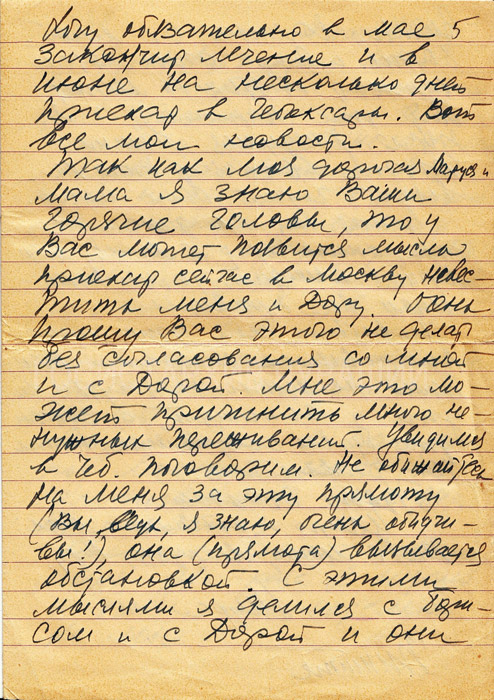 Хочу обязательно в мае 5
закончить лечение и в
июне на несколько дней
приехать в Чебоксары. Вот
все мои новости.
Так как моя дорогая Маруся и
мама я знаю Ваши
горячие головы, то у
Вас может появится мысль
приехать сейчас в Москву навес-
тить меня и Дору. Очень
прошу Вас этого не делать
без согласования со мной
и с Дорой. Мне это мо-
жет причинить много не-
нужных переживаний. Увидимся
в Чеб. поговорим. Не обижайтесь
на меня за эту прямоту
(Вы, ведь, я знаю, очень обидчи-
вы!), она (прямота) вызывается
обстановкой. С этими
мыслями я делился с Бори-
сом и с Дорой и они